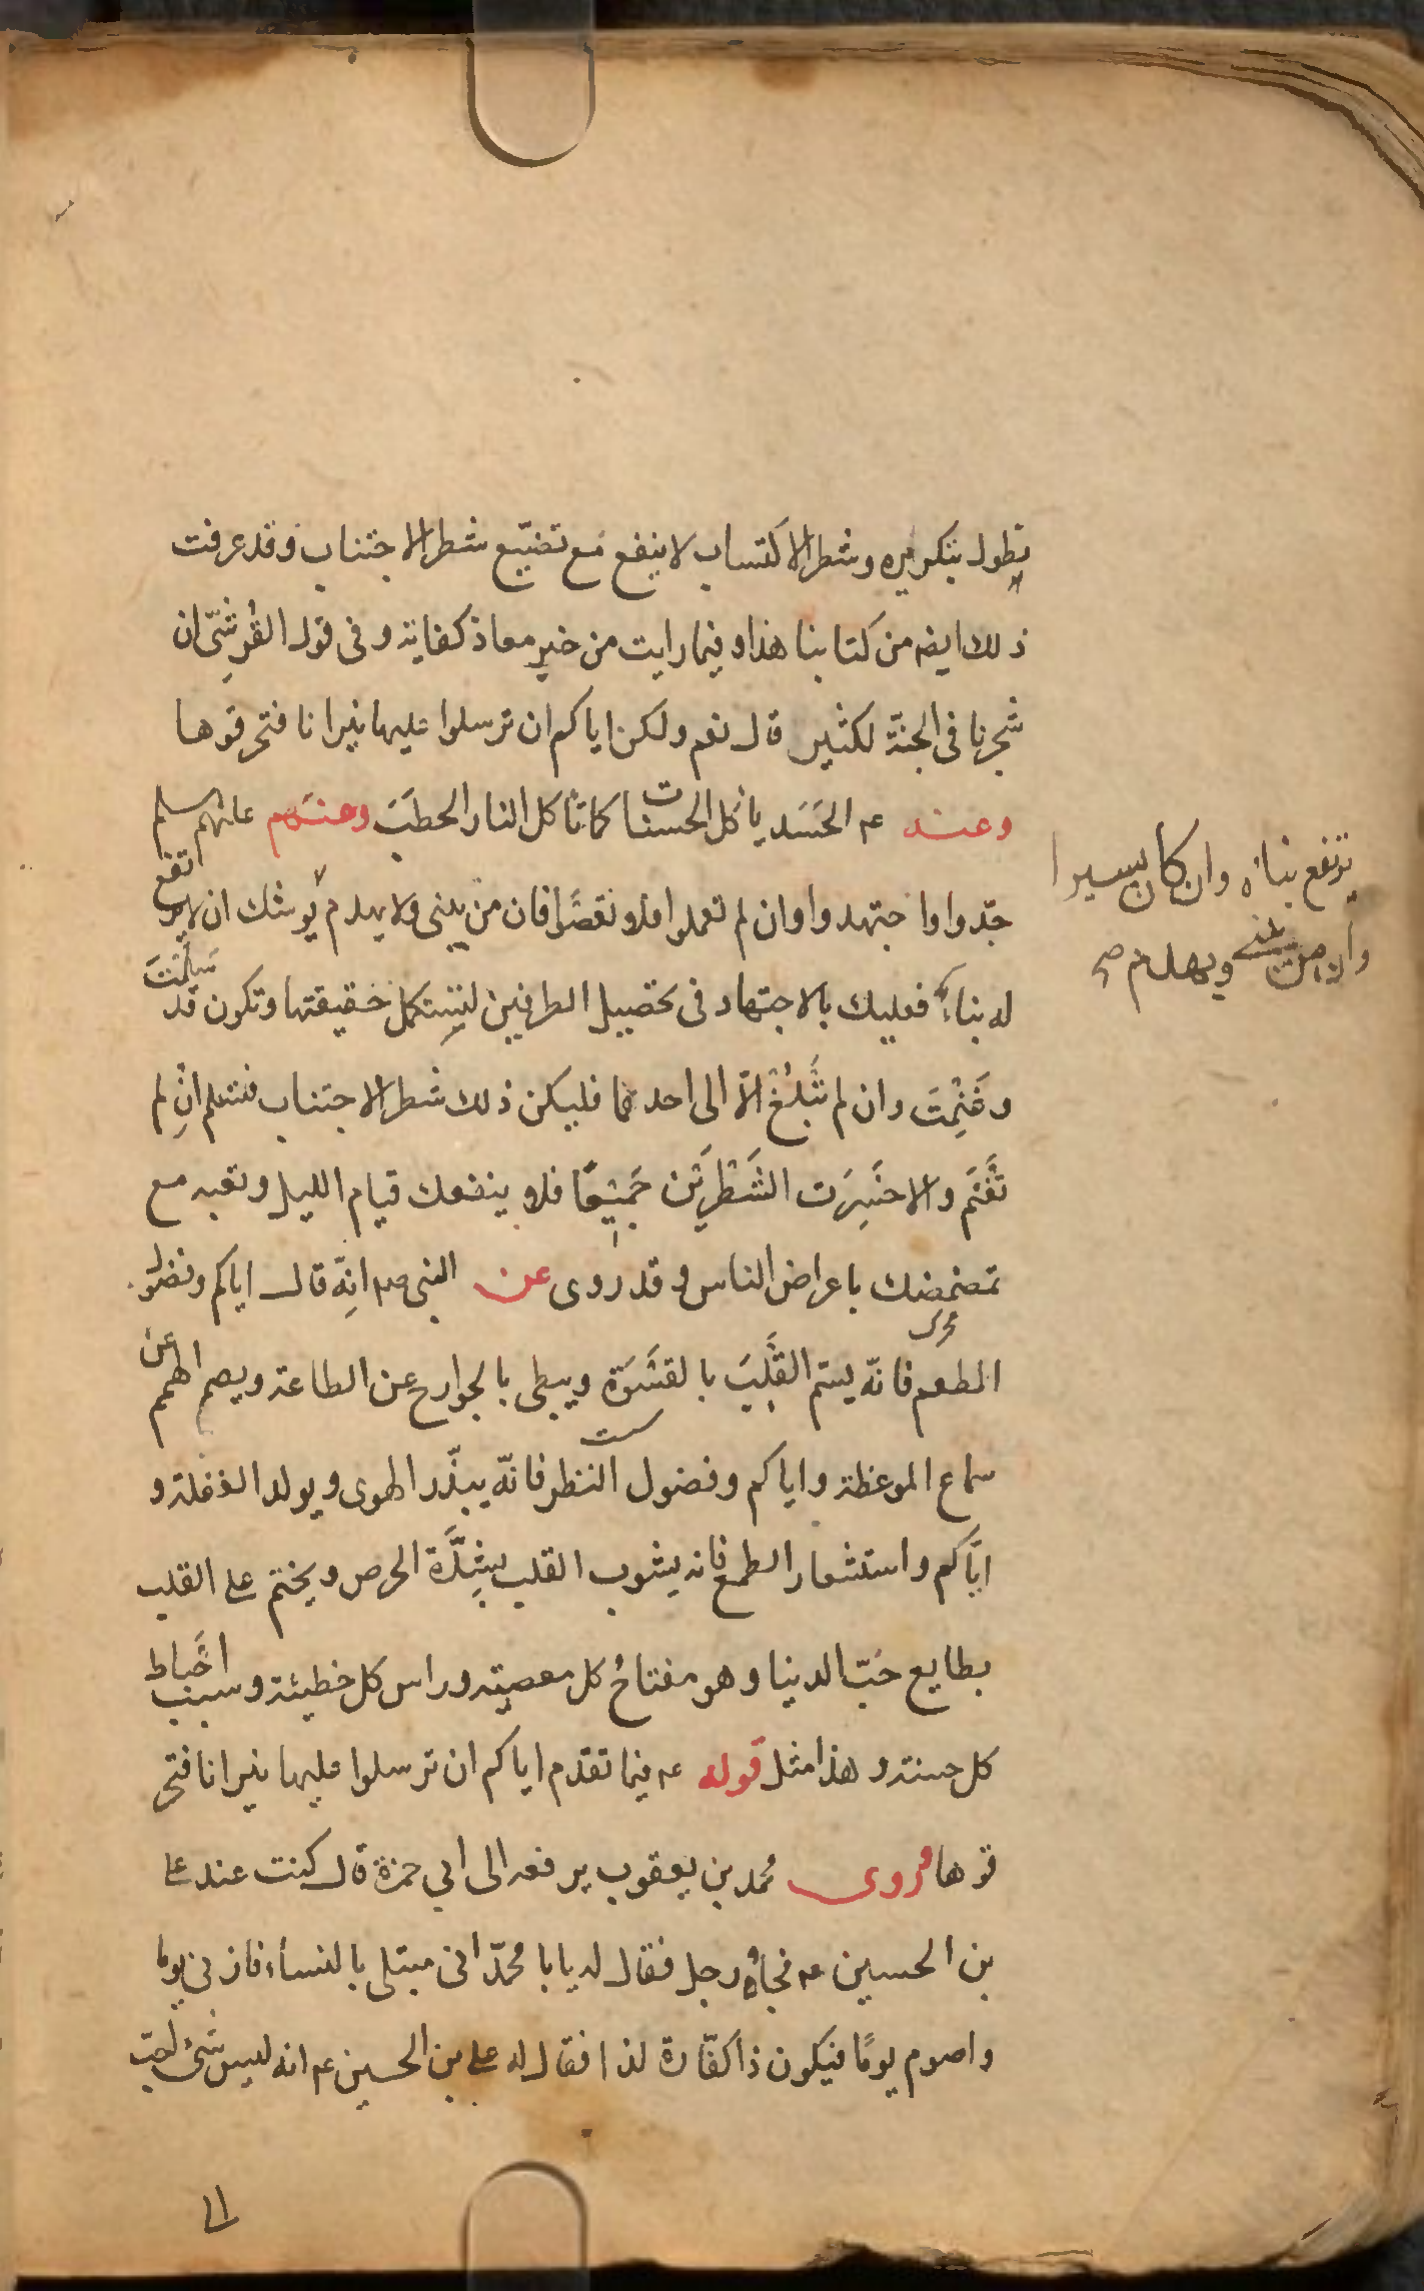 يطول بتكريره وشطر الاكتساب لا ينفع مع تضييع شطر الاجتناب وقد عرفت
ذلك ايضه من كتابنا هذا وفيما رايت من خبر معاذ كفاية وفى قول القُرشىّ ان
شجرنا فى الجنّة لكثير قال نعم ولكن اياكم ان ترسلوا عليها نيرانا فتحرقوها
وعنه ع الحَسَد ياٴكل الحسنات كما تاٴكل النار الحطبَ وعنهم عليهم السلم
جدّوا واجتهدوا وان لم تعملوا فلا تعصوا فان من يبنى ولا يهدم يوشك ان لا يرتفع
يرتفع بناؤه وان كان يسيرا
وان من يبنى ويهدم صح
له بناء فعليك بالاجتهاد فى تحصيل الطرفين لتستكمل حقيقتها وتكون قد سَلِمْتَ
وغَنِمْتَ وان لم تَبْلُغْ الّا الى احدهما فليكن ذلك شطر الاجتناب فتسلم انْ لم
تَغْنَم والا خَسِرَت الشَطْرَيْن جَمِيْعًا فلا ينفعك قيام الليل وتعبه مع
تمضمضك باعراض الناس وقد روى عن النبى صم انّه قال اياكم وفضول
المطعم فانّه يسم القَلْبَ بالقَسْوَة ويبطى بالجوارح عن الطاعة ويصم الهمم عن
سماع الموعظة واياكم وفضول النظر فانّه يبذّر الهوى ويولد الغفلة و
ايّاكم واستشعار الطمع فانه يشوب القلب بشِدَّة الحرص ويختم على القلب
بطايع حُبّ الدنيا وهو مفتاحُ كل معصية وراس كل خطيئة وسبب احْباط
كل حسنة وهذا مثل قوله ع فيما تقدّم اياكم ان ترسلوا عليها نيرانا فتحر
قوها وروى محمد بن يعقوب يرفعه الى ابي حمزة قال كنت عند على
بن الحسين ع فجاؤه رجل فقال له يابا محمّد انى مبتلى بالنساء فازنى يوما
واصوم يومًا فيكون ذا كفّارة لذا فقال له على بن الحسين ع انه ليس شئ احبّ
الى